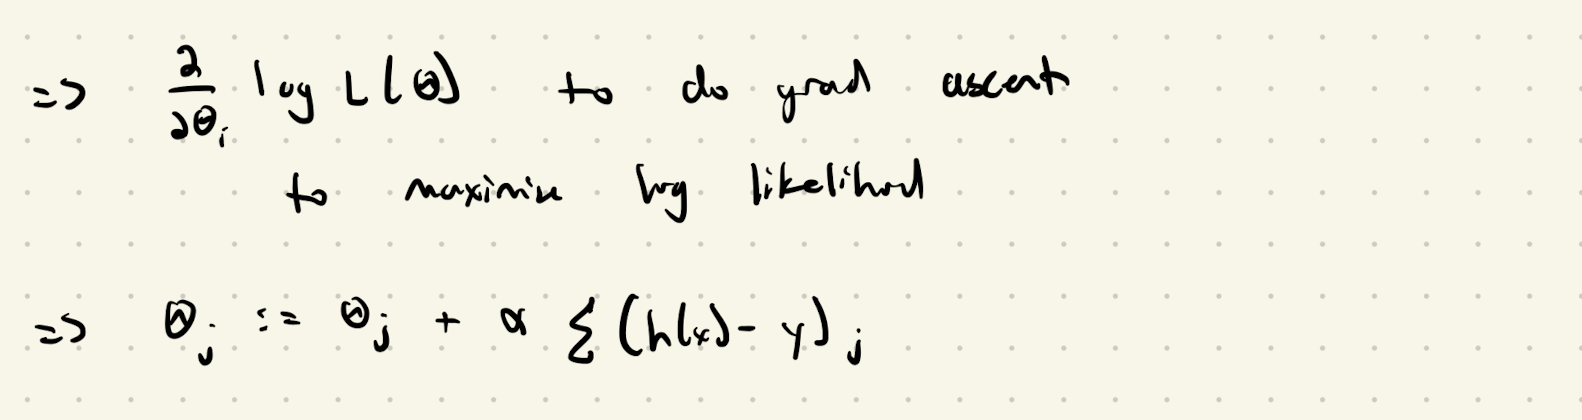 => ∂/∂θ_i log L(θ) to do grad ascent
to maximize log likelihood
=> θ_j := θ_j + α Σ (h(x) - y)_j